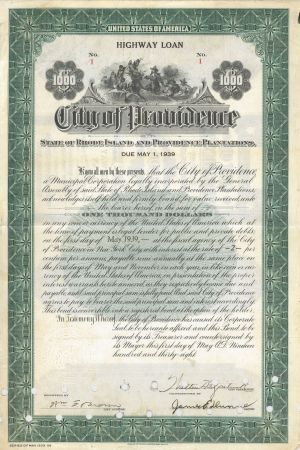 UNITED STATES OF AMERICA
HIGHWAY LOAN
No. 1
No. 1
1000
1000
City of Providence
STATE OF RHODE ISLAND AND PROVIDENCE PLANTATIONS,
DUE MAY 1, 1939
Know all men by these presents, that the City of Providence
a Municipal Corporation legally incorporated by the General
Assembly of said State of Rhode Island and Providence Plantations,
acknowledges itself held and firmly bound for value received unto
the bearer hereof in the sum of
ONE THOUSAND DOLLARS
in any coin or currency of the United States of America which at
the time of payment is legal tender for public and private debts,
on the first day of May, 1939, at the fiscal agency of the City
of Providence in New York City with interest at the rate of 2 per
centum per annum, payable semi-annually at the same place on
the first days of May and November in each year, in like coin or cur-
rency of the United States of America, on presentation of the proper
interest warrants hereto annexed as they respectively become due and
payable, until said principal sum is fully paid. And said City of Providence
agrees to pay to bearer the said principal sum and interest accordingly.
This bond is receivable into a registered bond at the option of the holder.
In Testimony Whereof, the City of Providence has caused its Corporate
Seal to be hereunto affixed and this Bond to be
signed by its Treasurer and countersigned by
its Mayor this first day of May A.D. Nineteen
hundred and thirty-eight.